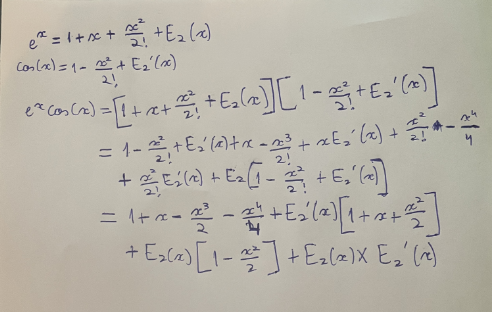 e^x = 1 + x + x²/2! + E₂(x)
cos(x) = 1 - x²/2! + E₂'(x)
e^x cos(x) = [1 + x + x²/2! + E₂(x)] [1 - x²/2! + E₂'(x)]
= 1 - x²/2! + E₂'(x) + x - x³/2! + xE₂'(x) + x²/2! - x⁴/4
+ x²/2! E₂'(x) + E₂[1 - x²/2! + E₂'(x)]
= 1 + x - x³/2 - x⁴/4 + E₂'(x) [1 + x + x²/2]
+ E₂(x) [1 - x²/2] + E₂(x) × E₂'(x)